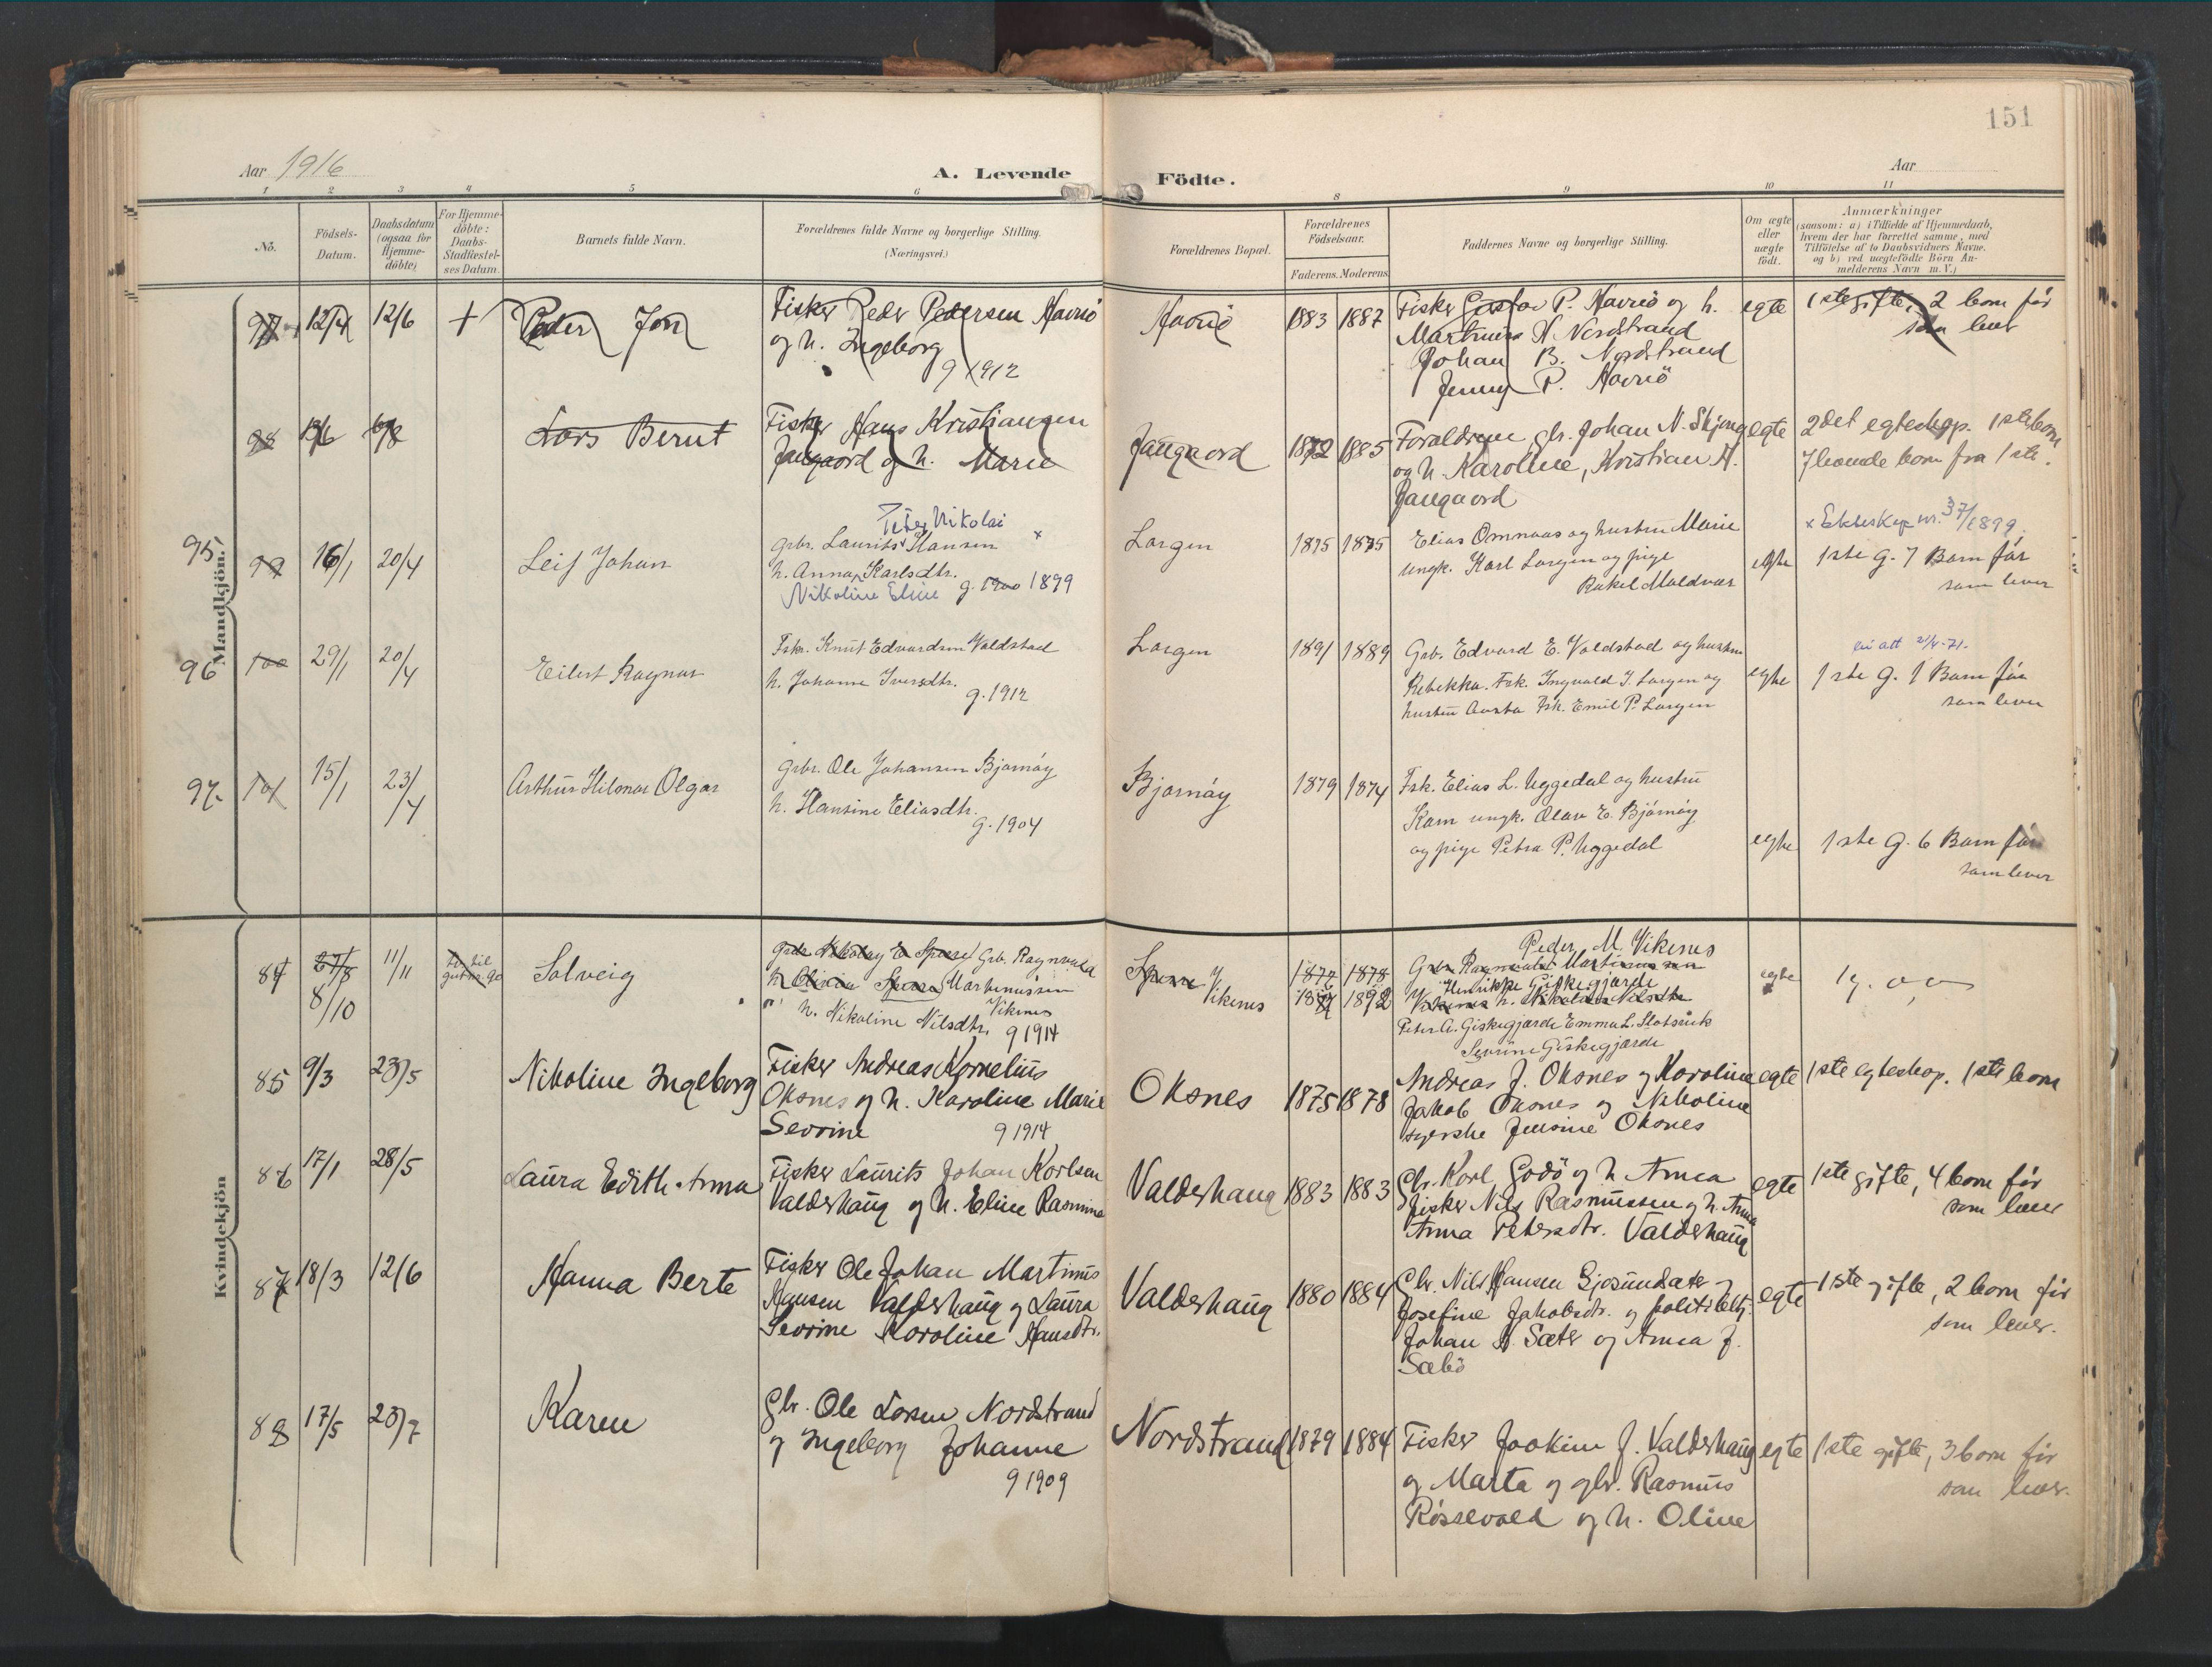 151
Aar 1916
A. Levende
Födte.
Aar
1 2 3 4 5 6 8 9 10 11
No.
Födsels-Datum.
Daabsdatum (ogsaa for Hjemme-döbte)
For Hjemme-döbte: Daabs-Stadfæstel-ses Datum.
Barnets fulde Navn.
Forældrenes fulde Navne og borgerlige Stilling.
(Næringsvei.)
Forældrenes Bopæl.
Forældrenes Födselsaar.
Faderens. Moderens
Faddernes Navne og borgerlige Stilling.
Om ægte eller uægte født.
Anmærkninger
(saasom: a) i Tilfælde af Hjemmedaab,
hvem der har forrettet samme, med
Tilföielse af to Daabsvidners Navne.
og b) ved uægtefödte Börn An-
melderens Navn m. V.)
Mandkjön.
97 12/4 12/6 + Peder Jon
Fisker Peder Pedersen Havnö
og h. Ingeborg
g 1912
Havnö 1883 1887
Fisker Gustav P. Havnö og h.
Martinus A. Nordstrand
Johan B. Nordstrand
Jenny P. Havnö
egte
1ste gifte, 2 born før
som lever
98 13/6 6/8 Lars Bernt
Fisker Hans Kristiansen
Jangaard og h. Marie
Jangaard 1872 1885
Foraldrene, gbr. Johan N. Skjong
og h. Karoline, Kristian H.
Jangaard
egte
2det egteskap. 1ste born
7 levende born fra 1ste.
95. 99 16/1 20/4 Leif Johan
Peter Nikolai
Gbr. Laurits Hansen x
h. Anna Karlsdtr.
Nikoline Eline g. 1900 1899
Lorgen 1875 1875
Elias Omnaas og hustru Marie
ungk. Karl Lorgen og pige
Rakel Moldvær
egte
x Ekteskap nr. 37/1899.
1ste G. 7 Barn før
som lever
96 100 29/1 20/4 Eilert Ragnar
Fsk. Knut Edvardsen Valdstad
h. Johanne Iversdtr.
g. 1912
Lorgen 1891 1889
Gsb. Edvard E. Valdstad og hustru
Rebekka. Fsk. Ingvald I. Lorgen og
hustru Fsk. Emil P. Lorgen
egte
att 21/4-71.
1ste G. 1 Barn før
som lever
97. 101 15/1 23/4 Arthur Hilmar Olgar
Gbr. Ole Johansen Bjørnøy
h. Hansine Eliasdtr.
g. 1904
Bjørnøy 1879 1874
Fsk. Elias L. Uggedal og hustru
Karn ungk. Olav E. Bjørnøy
og pige Petra P. Uggedal
egte
1ste G. 6 Barn før
som lever
Kvindekjön
84 27/8 8/10 11/11 Solveig
Nikolay E. Sperre Gbr. Ragnvald
h. Olivia Sperre Martinussen
Vikenes
h. Nikoline Nilsdtr. g 1914
Sperre Vikenes
1874 1878
1892
Peder M. Vikenes
Gsbr. Ragnvald Martinussen
Henrikke Giskegjærde
Vikenes h. Nikoline Nilsdtr
Peter A. Giskegjærde Emma L. Slotsvik
Sevrine Giskegjærde
egte
1 g. 0,0
85 9/3 23/5 Nikoline Ingeborg
Fisker Andreas Kornelius
Oksnes og h. Karoline Marie
Sevrine g 1914
Oksnes 1875 1878
Andreas J. Oksnes og Karoline
Jakob Oksnes og Nikoline
syerske Jensine Oksnes
egte
1ste egteskap. 1ste born
86 17/1 28/5 Laura Edith Anna
Fisker Laurits Johan Karlsen
Valderhaug og h. Eline Rasmine
Valderhaug 1883 1883
Gbr. Karl Godö og h. Anna
fisker Nils Rasmussen og h. Anna
Anna Petersdtr. Valderhaug
egte
1ste gifte, 4 born før
som lever
87 18/3 12/6 Hanna Berte
Fisker Ole Johan Martinus
Hansen Valderhaug og Laura
Sevrine Karoline Hansdtr.
Valderhaug 1880 1884
Gbr. Nils Hansen Gjøsundsæter og
Josefine Jakobsdtr. og politibetj.
Johan A. Sæter og Anna J.
Sæbö
egte
1ste gifte, 2 born før
som lever.
88 17/5 23/7 Karen
Gbr. Ole Larsen Nordstrand
og Ingeborg Johanne
g 1909
Nordstrand 1879 1884
Fisker Joakim J. Valderhaug
og Marta og gbr. Rasmus
Røssevold og h. Oline
egte
1ste gifte, 3 born før
som lever.